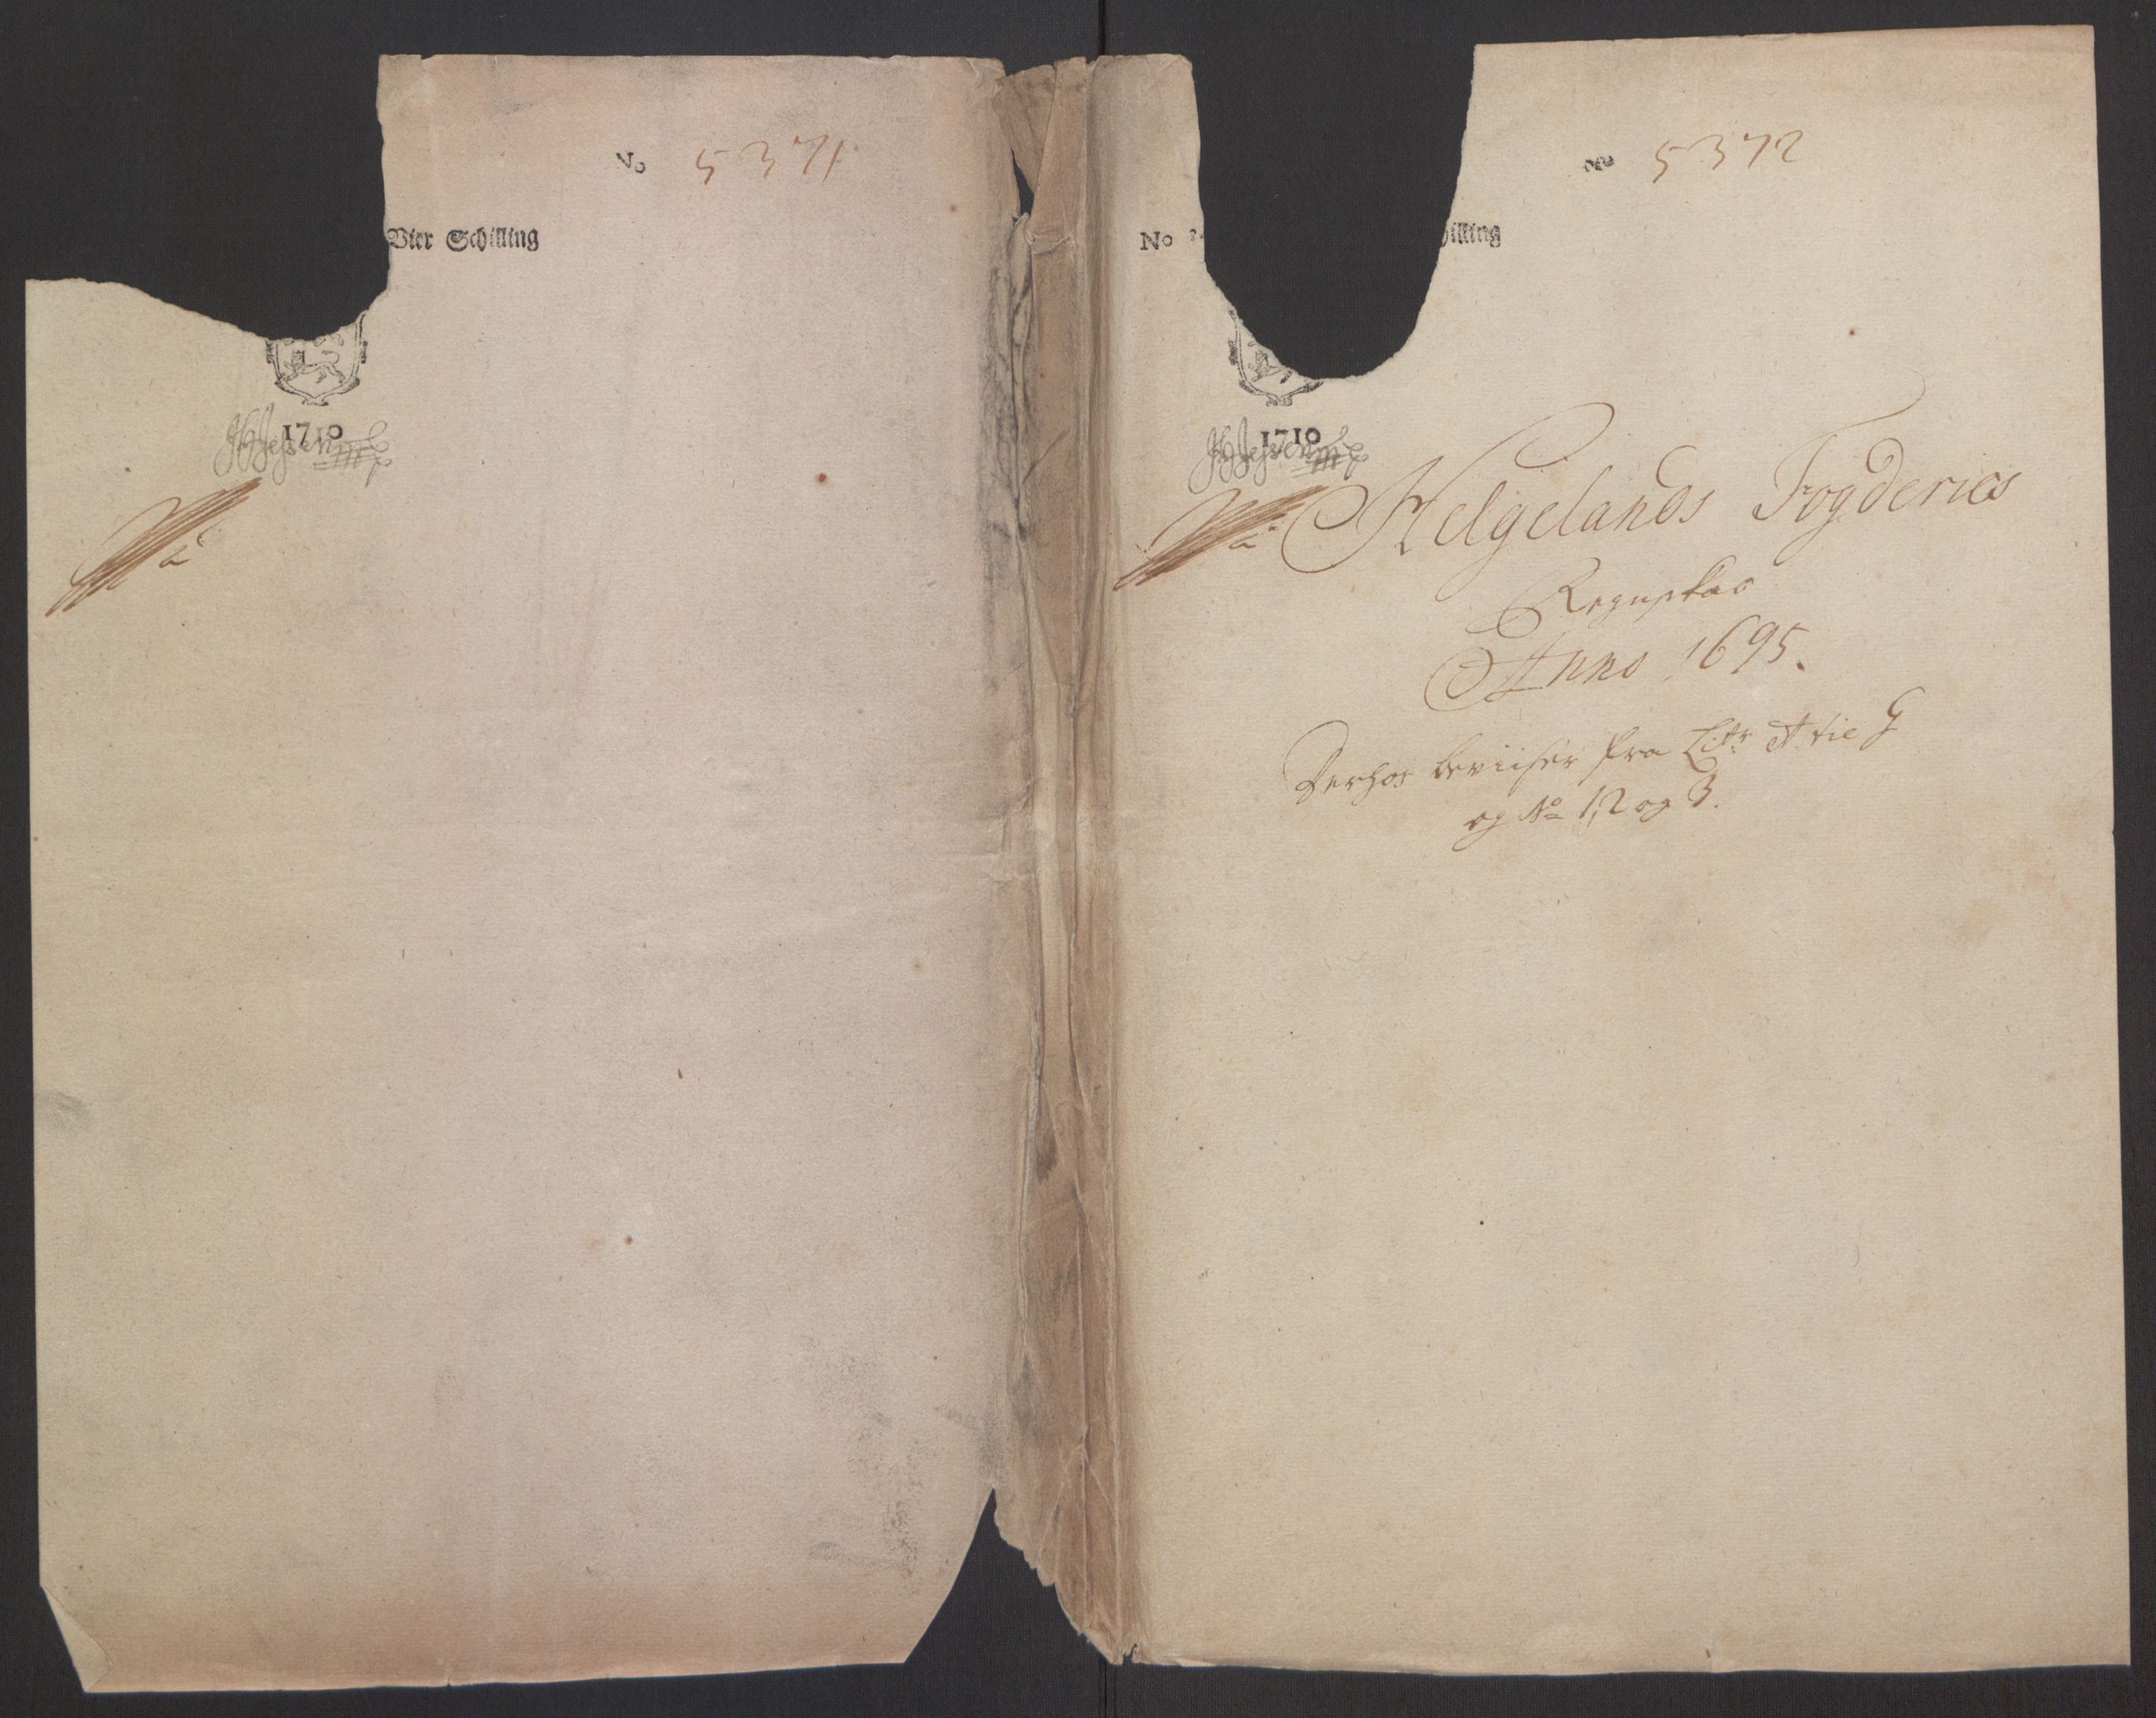 No 5371
Vier Schilling
1710
No 5372
No
illing
1710
Helgelands Fogderies
Regnskab
Anno 1695.
Derhos beviiser fra Litr A tie G
og No 1, 2 og 3.